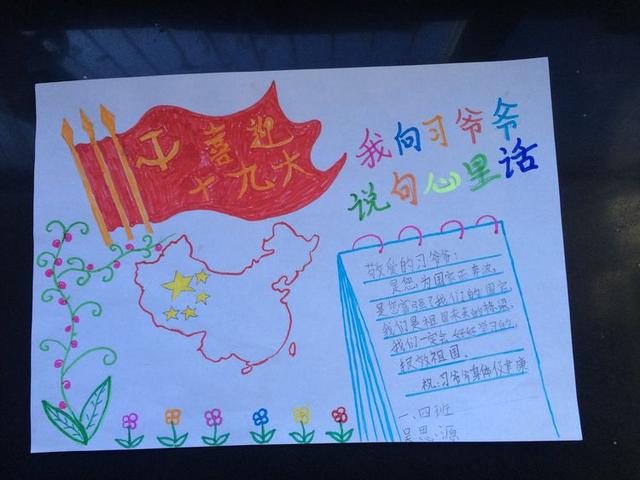 喜迎
十九大
我向习爷爷
说句心里话
敬爱的习爷爷:
是您,为国家而奔波,
是您富强了我们的国家,
我们是祖国未来的栋梁,
我们一定会好好学习的,
报效祖国。
祝:习爷爷身体健康
一.四班
吴思源